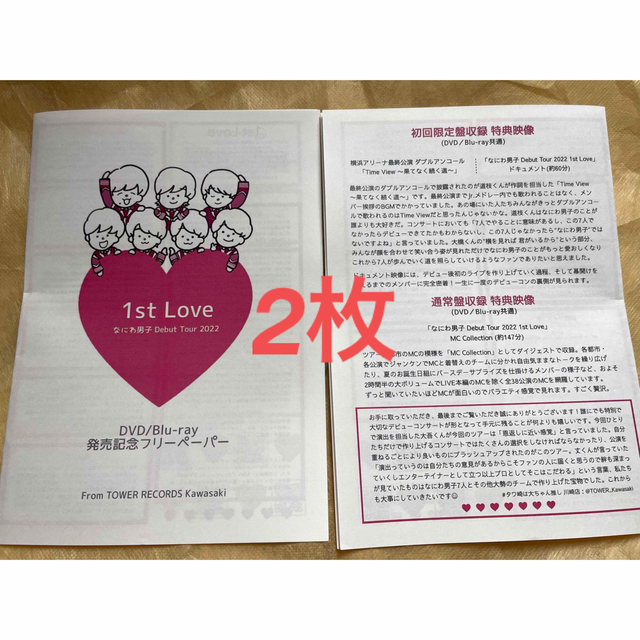 1st Love
なにわ男子 Debut Tour 2022
DVD/Blu-ray
発売記念フリーペーパー
From TOWER RECORDS Kawasaki
2枚
初回限定盤収録 特典映像
(DVD/Blu-ray共通)
横浜アリーナ最終公演 ダブルアンコール
「Time View 〜果てなく続く道〜」
「なにわ男子 Debut Tour 2022 1st Love」
ドキュメント(約60分)
最終公演のダブルアンコールで披露されたのが道枝くんが作詞を担当した「Time View
〜果てなく続く道〜」です。最終公演までJr.メドレー内でも歌われることはなく、メン
バー挨拶のBGMでかかっていました。あの場にいた人たちみんながきっとダブルアンコー
ルで歌われるのはTime Viewだと思ったんじゃないかな。道枝くんはなにわ男子のことが
誰よりも大好きだ。コンサートにおいても「7人でやることに意味があるし、この7人で
なかったらデビューできてたかもわからないし、この7人じゃなかったら“なにわ男子”では
ないですよね」と言っていました。大橋くんの“横を見れば 君がいるから”という部分、
みんなが顔を合わせて笑い合う姿が見れただけでなにわ男子のことがもっと愛おしくなり
これから7人が歩んでいく道を照らしていけるようなファンでありたいと思えました。
ドキュメント映像には、デビュー後初のライブを作り上げていく過程、そして幕開けを
えるまでのメンバーに完全密着!一生に一度のデビューコンの裏側が見られます。
通常盤収録 特典映像
(DVD/Blu-ray共通)
「なにわ男子 Debut Tour 2022 1st Love」
MC Collection (約147分)
ツアー 都市のMCの模様を「MC Collection」としてダイジェストで収録。各都市・
各公演でジャンケンでMCと着替えのチームに分かれ自由気ままなトークを繰り広げ
たり、夏のお誕生日組にバースデーサプライズを仕掛けるメンバーの様子など、およそ
2時間半の大ボリュームでLIVE本編のMCを除く全38公演のMCを網羅しています。
ずっと聞いていたいほどMCが面白いのでバラエティ感覚で見れます。すごく贅沢。
お手に取っていただき、最後までご覧いただき誠にありがとうございます!誰にでも特別で
大切なデビューコンサートが形となって手元に残ることが何よりも嬉しいです。今回ひとり
で演出を担当した大吾くんが今回のツアーは「恩返しに近い感覚」と言っていました。自分
たちだけで作り上げるコンサートではたくさんの選択をしなければならなかったり、公演を
重ねるごとにより良いものにブラッシュアップされたのがこのツアー。丈くんが言っていた
「演出っていうのは自分たちの意見があるからこそファンの人に届くと思うので幹も深まっ
ていくしエンターテイナーとして立つ以上プロとしてそこはこだわる」という言葉、私たち
が見ていたものはなにわ男子7人とその他大勢のチームで作り上げた宝物でした。これから
も大事にしていきたいです☺
#タワ崎は大ちゃん推し 川崎店:@TOWER_Kawasaki